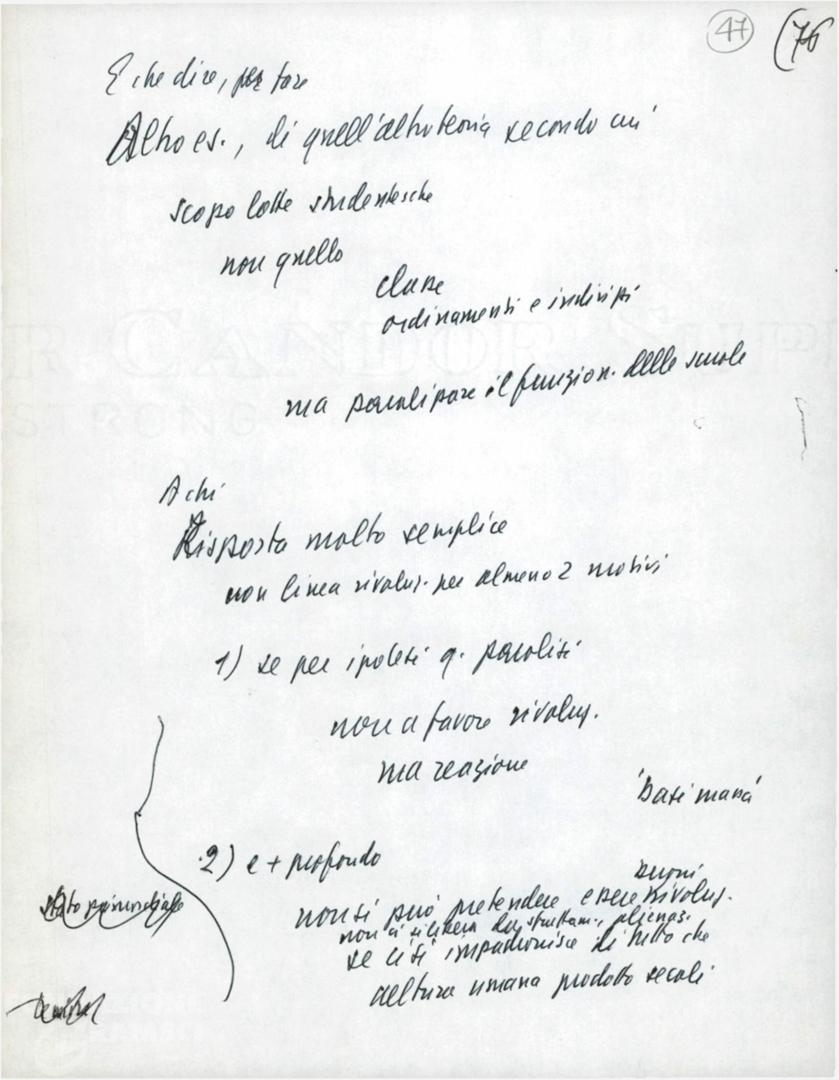 47 (76
E che dire, per fare
Altro es., di quell'altra teoria secondo cui
scopo lotte studentesche
non quello
classe
ordinamenti e indirizzi
ma paralizzare il funzion. delle scuole
A chi
Risposta molto semplice
non linea rivoluz. per almeno 2 motivi
1) se per ipotesi q. paralisi
non a favore rivoluz.
ma reazione
'basi massa'
2) e + profondo
buoni
non si può pretendere essere rivoluz.
non ci si libera da sfruttam., alienaz.
se ci si impadronisce di tutto che
cultura umana prodotto secoli